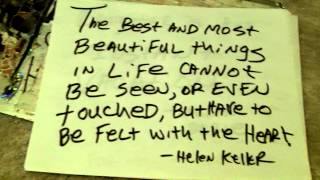 The Best and most
Beautiful things
in Life cannot
Be seen, or even
touched, But have to
Be felt with the Heart
- Helen Keller